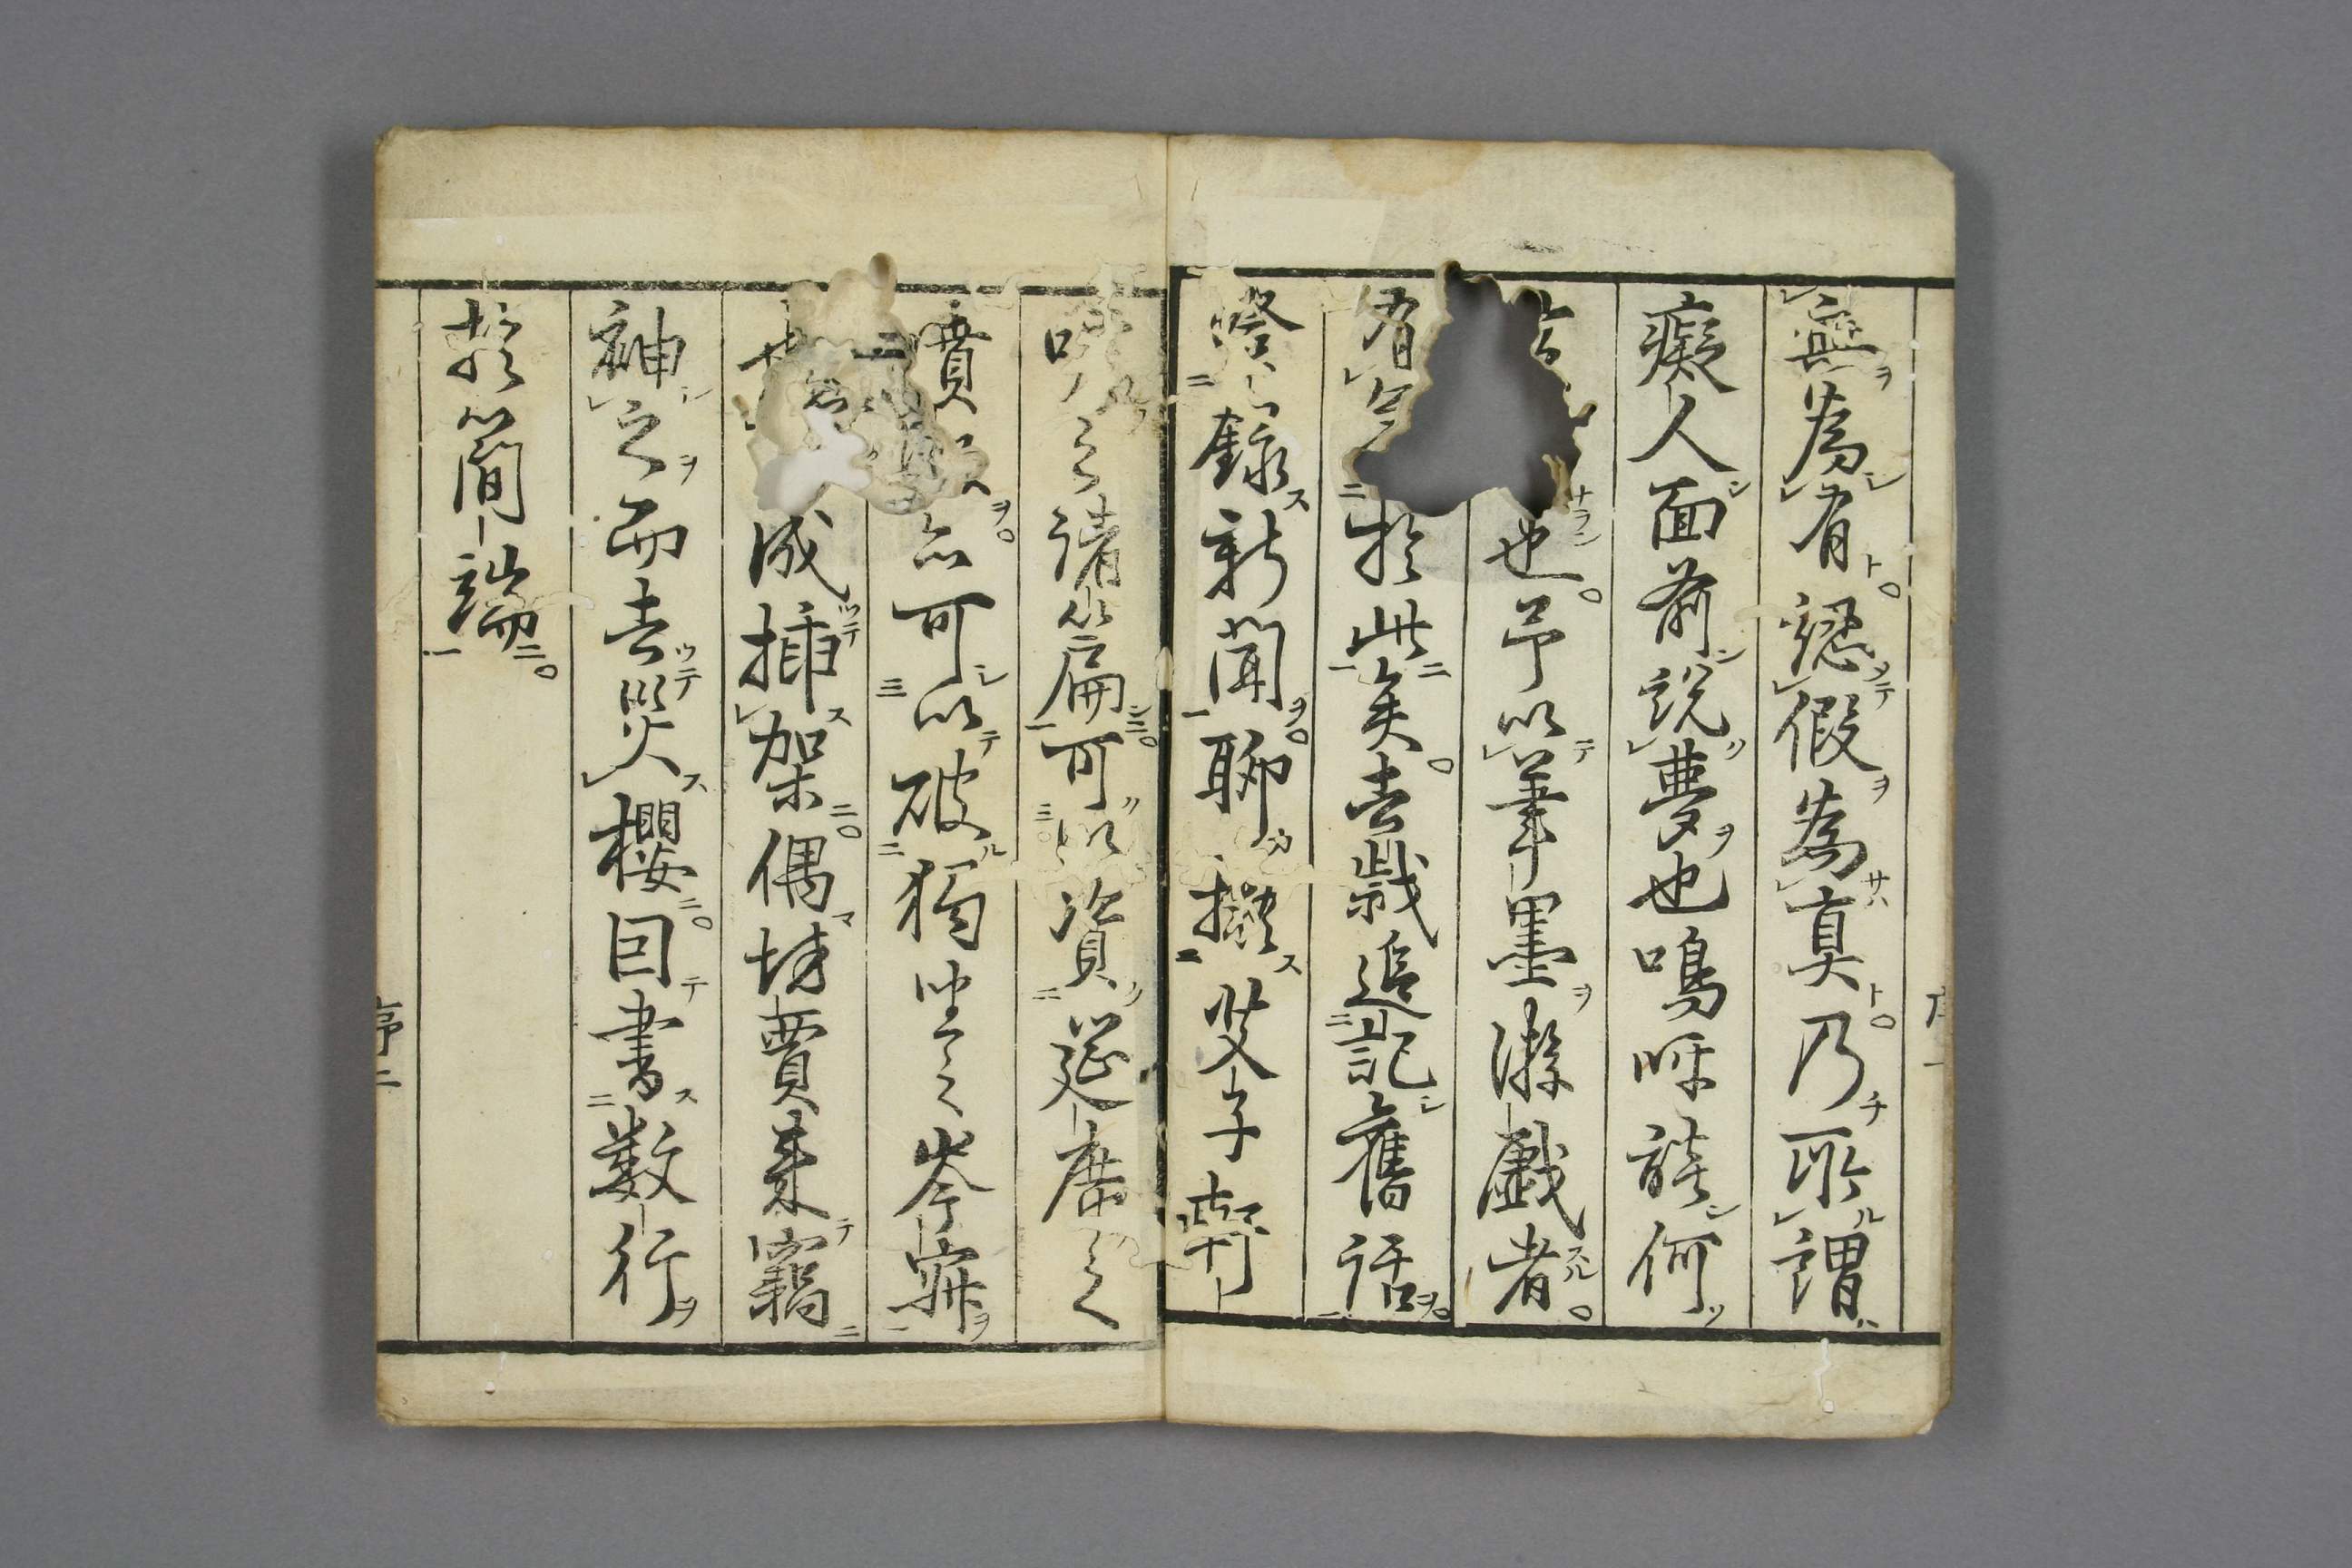 無為有認假為真乃所謂
癡人面前説夢也嗚呼談何
也予以筆墨游戯者
有於此矣去歳追記舊話
燈録新聞聊擬艾子
之諸篇可以資莚席之
亦可以破獨坐之岑寂
成插架偶坊賈来竊
神之而去災櫻因書数行
於簡端
序二